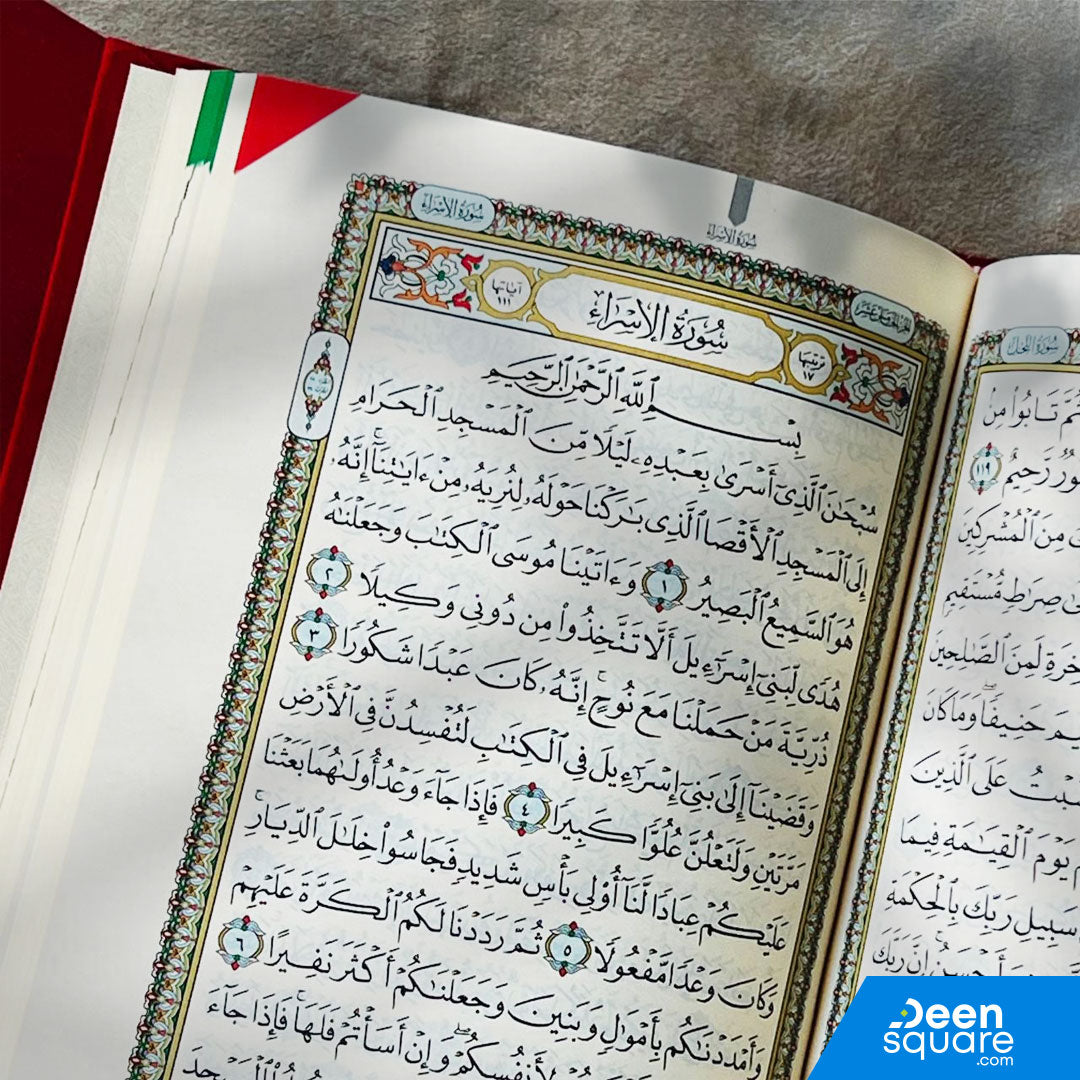 سُورَةُ الإِسْرَاء
سُورَةُ الإِسْرَاء
الجزء الخامس عشر
آياتها
١١١
سُورَةُ الإِسْرَاءِ
ترتيبها
١٧
بِسْمِ ٱللَّهِ ٱلرَّحْمَٰنِ ٱلرَّحِيمِ
سُبْحَٰنَ ٱلَّذِىٓ أَسْرَىٰ بِعَبْدِهِۦ لَيْلًا مِّنَ ٱلْمَسْجِدِ ٱلْحَرَامِ
إِلَى ٱلْمَسْجِدِ ٱلْأَقْصَا ٱلَّذِى بَٰرَكْنَا حَوْلَهُۥ لِنُرِيَهُۥ مِنْ ءَايَٰتِنَآ ۚ إِنَّهُۥ
هُوَ ٱلسَّمِيعُ ٱلْبَصِيرُ ١ وَءَاتَيْنَا مُوسَى ٱلْكِتَٰبَ وَجَعَلْنَٰهُ
هُدًى لِّبَنِىٓ إِسْرَٰٓءِيلَ أَلَّا تَتَّخِذُوا۟ مِن دُونِى وَكِيلًا ٢
ذُرِّيَّةَ مَنْ حَمَلْنَا مَعَ نُوحٍ ۚ إِنَّهُۥ كَانَ عَبْدًا شَكُورًا ٣
وَقَضَيْنَآ إِلَىٰ بَنِىٓ إِسْرَٰٓءِيلَ فِى ٱلْكِتَٰبِ لَتُفْسِدُنَّ فِى ٱلْأَرْضِ
مَرَّتَيْنِ وَلَتَعْلُنَّ عُلُوًّا كَبِيرًا ٤ فَإِذَا جَآءَ وَعْدُ أُولَىٰهُمَا بَعَثْنَا
عَلَيْكُمْ عِبَادًا لَّنَآ أُو۟لِى بَأْسٍ شَدِيدٍ فَجَاسُوا۟ خِلَٰلَ ٱلدِّيَارِ ۚ
وَكَانَ وَعْدًا مَّفْعُولًا ٥ ثُمَّ رَدَدْنَا لَكُمُ ٱلْكَرَّةَ عَلَيْهِمْ
وَأَمْدَدْنَٰكُم بِأَمْوَٰلٍ وَبَنِينَ وَجَعَلْنَٰكُمْ أَكْثَرَ نَفِيرًا ٦
لِأَنفُسِكُمْ ۖ وَإِنْ أَسَأْتُمْ فَلَهَا ۚ فَإِذَا جَآءَ
ٱلْمَسْجِدَ
سُورَةُ النَّحْلِ
تَابُوا۟ مِنۢ
رَّحِيمٌ ١١٩
مِنَ ٱلْمُشْرِكِينَ
صِرَٰطٍ مُّسْتَقِيمٍ
لَمِنَ ٱلصَّٰلِحِينَ
حَنِيفًا ۖ وَمَا كَانَ
عَلَى ٱلَّذِينَ
يَوْمَ ٱلْقِيَٰمَةِ فِيمَا
سَبِيلِ رَبِّكَ بِٱلْحِكْمَةِ
أَحْسَنُ ۚ إِنَّ رَبَّكَ
Deen
square
.com